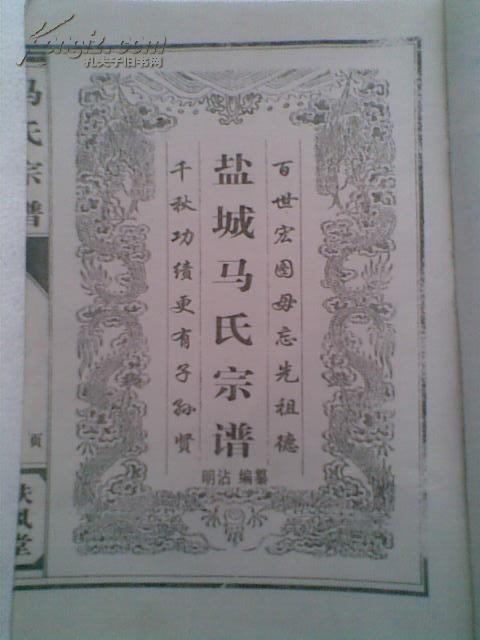 Kongfz.com
孔夫子旧书网
百世宏图毋忘先祖德
盐城马氏宗谱
千秋功绩更有子孙贤
明沾 编纂
马氏宗谱
页
扶风堂